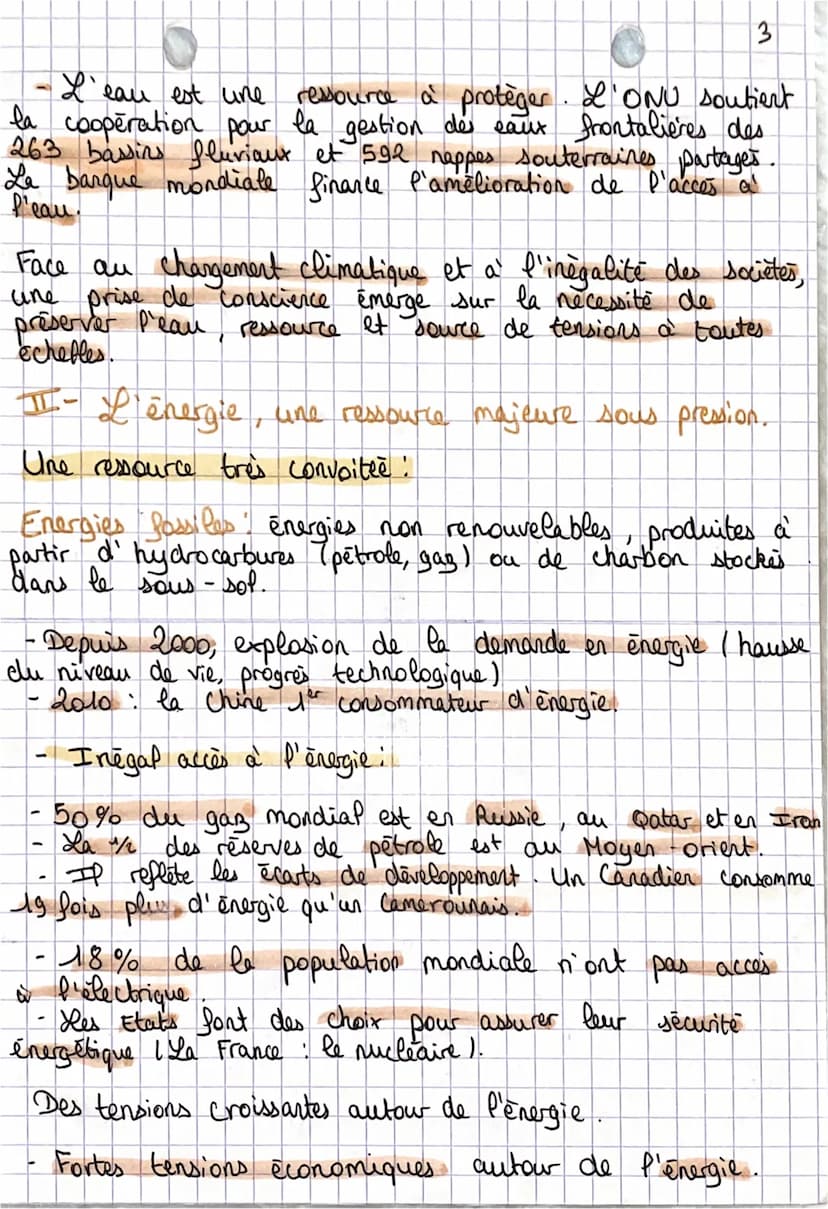 3
- L'eau est une ressource à protéger. L'ONU soutient
la coopération pour la gestion des eaux frontalières des
263 bassins fluviaux et 592 nappes souterraines partagés.
La banque mondiale finance l'amélioration de l'accès à
l'eau.
Face au changement climatique et à l'inégalité des sociétés,
une prise de conscience émerge sur la nécessité de
préserver l'eau, ressource et source de tensions à toutes
échelles.
II- L'énergie, une ressource majeure sous pression.
Une ressource très convoitée :
Energies fossiles : énergies non renouvelables, produites à
partir d'hydrocarbures (pétrole, gaz) ou de charbon stockés
dans le sous-sol.
- Depuis 2000, explosion de la demande en énergie (hausse
du niveau de vie, progrès technologique)
- 2010 : la Chine 1er consommateur d'énergie.
- Inégal accès à l'énergie :
- 50% du gaz mondial est en Russie, au Qatar et en Iran
- La 1/2 des réserves de pétrole est au Moyen-orient.
- Il reflète les écarts de développement. Un Canadien consomme
19 fois plus d'énergie qu'un Camerounais.
- 18% de la population mondiale n'ont pas accès
à l'électrique.
- Les Etats font des choix pour assurer leur sécurité
énergétique (La France : le nucléaire).
Des tensions croissantes autour de l'énergie.
- Fortes tensions économiques autour de l'énergie.